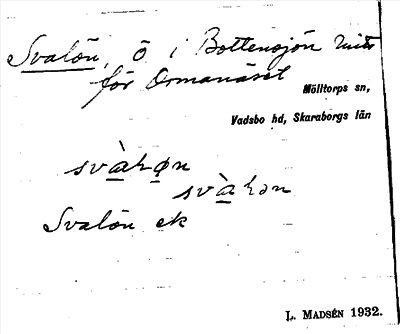 Svalön, ö i Bottensjön mitt
för Ormanäset
Mölltorps sn,
Vadsbo hd, Skaraborgs län
svàhøn
svàhən
Svalön ek
L. MADSÉN 1932.